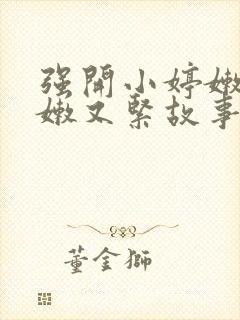 强開小婷嫩
嫩又緊故事
董金獅